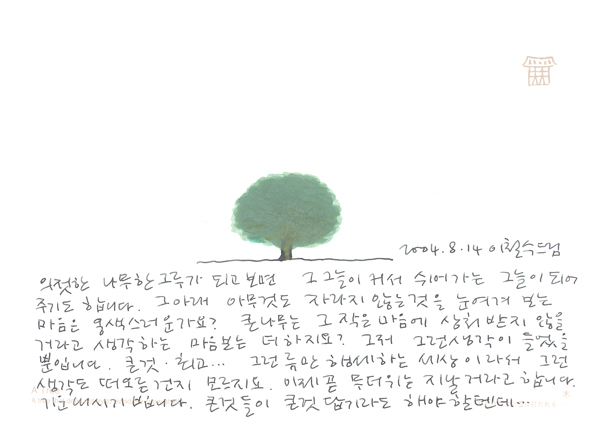 2004.8.14 이철수드림
의젓한 나무한그루가 되고보면 그 그늘이 커서 쉬어가는 그늘이 되어
주기도 합니다. 그아래 아무것도 자라지 않는것을 눈여겨 보는
마음은 옹색스러운가요? 큰나무는 그 작은 마음에 상처 받지 않을
거라고 생각하는 마음보는 더 하지요? 그저 그런생각이 들었을
뿐입니다. 큰것·최고... 그런 류만 행세하는 세상이라서 그런
생각도 떠오른건지 모르지요. 이제곧 무더위는 지날거라고 합니다.
기운내시기 빕니다. 큰것들이 큰것답기라도 해야 할텐데...